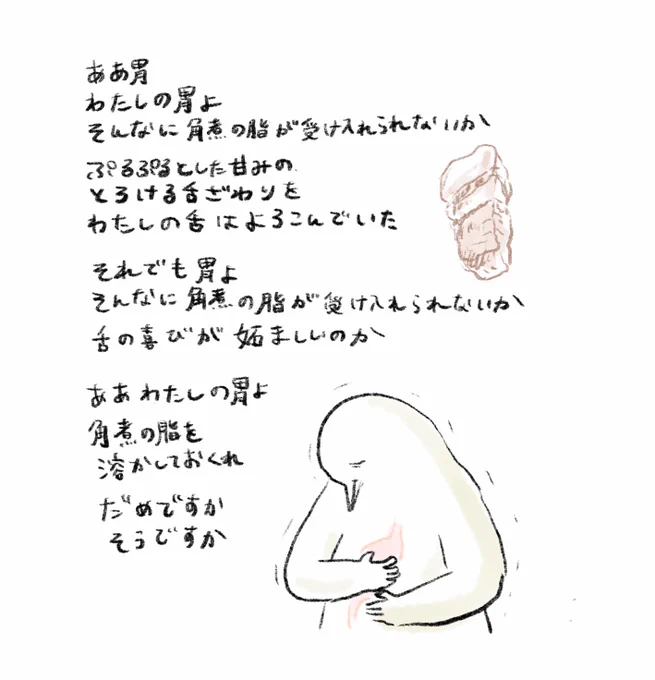 ああ胃
わたしの胃よ
そんなに角煮の脂が受け入れられないか
ぷるぷるとした甘みの
とろける舌ざわりを
わたしの舌はよろこんでいた
それでも胃よ
そんなに角煮の脂が受け入れられないか
舌の喜びが妬ましいのか
ああわたしの胃よ
角煮の脂を
溶かしておくれ
だめですか
そうですか